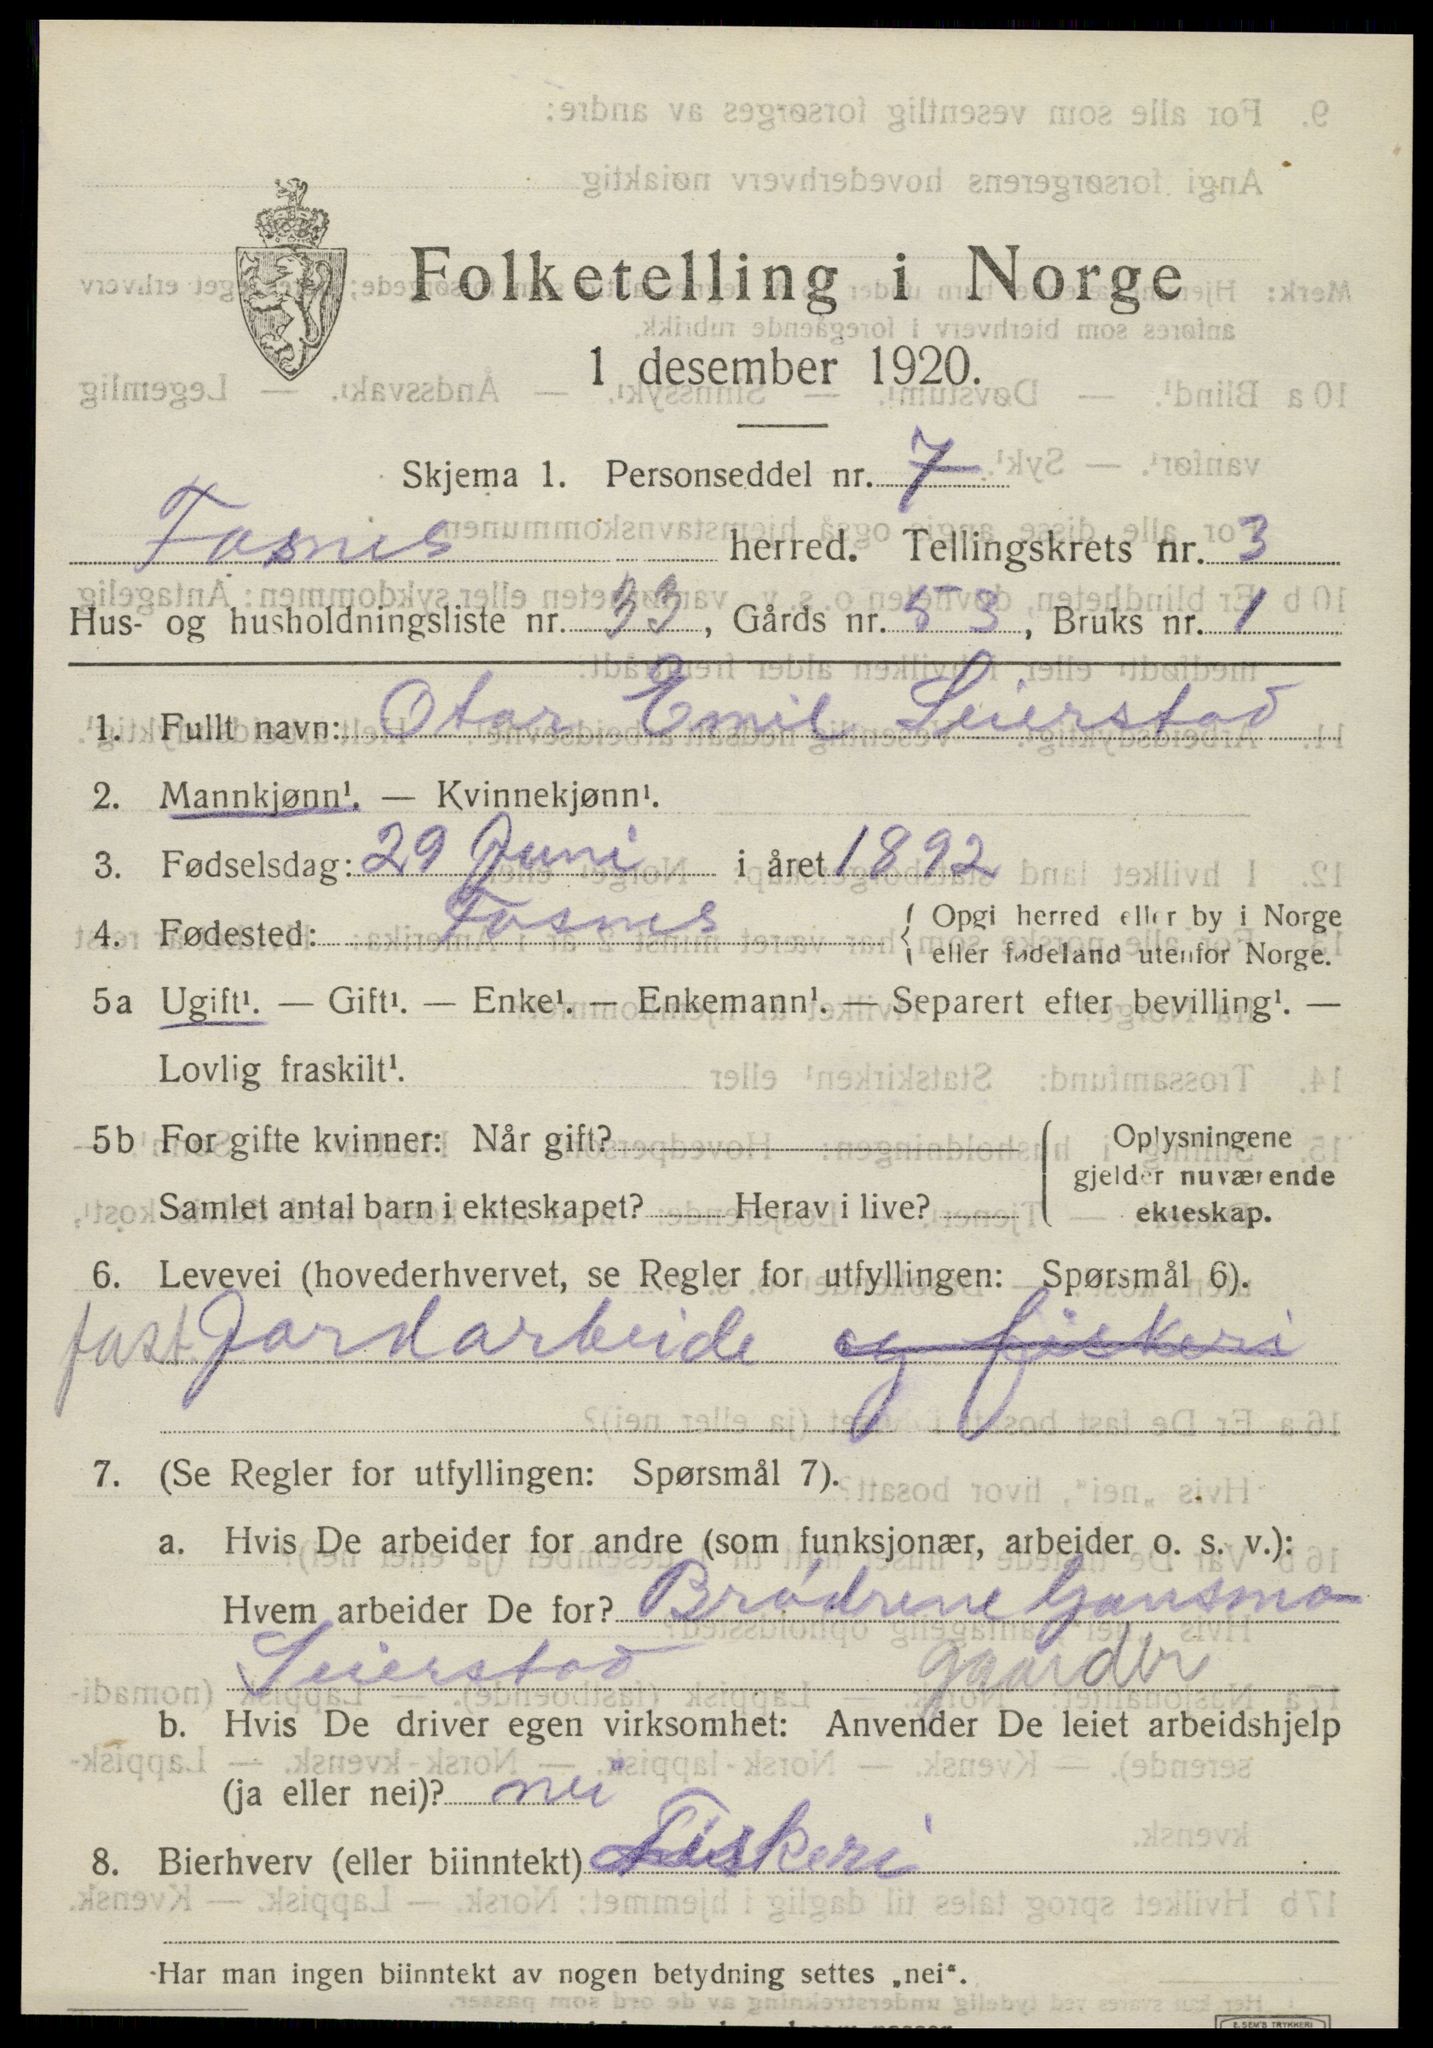 Folketelling i Norge
1 desember 1920.
Skjema 1. Personseddel nr. 7
Fosnes herred. Tellingskrets nr. 3
Hus- og husholdningsliste nr. 33, Gårds nr. 53, Bruks nr. 1
1. Fullt navn: Otar Emil Seierstad
2. Mannkjønn¹. — Kvinnekjønn¹.
3. Fødselsdag: 29 Juni i året 1892
4. Fødested: Fosnes { Opgi herred eller by i Norge
eller fødeland utenfor Norge.
5a Ugift¹. — Gift¹. — Enke¹. — Enkemann¹. — Separert efter bevilling¹. —
Lovlig fraskilt¹.
5b For gifte kvinner: Når gift? Oplysningene
gjelder nuværende
Samlet antal barn i ekteskapet? Herav i live? ekteskap.
6. Levevei (hovederhvervet, se Regler for utfyllingen: Spørsmål 6).
fast. Jordarbeide og fiskeri
7. (Se Regler for utfyllingen: Spørsmål 7).
a. Hvis De arbeider for andre (som funksjonær, arbeider o. s. v.):
Hvem arbeider De for? Brødrene Gansmo
Seierstad gaarder
b. Hvis De driver egen virksomhet: Anvender De leiet arbeidshjelp
(ja eller nei)? nei
8. Bierhverv (eller biinntekt) Fiskeri
Har man ingen biinntekt av nogen betydning settes „nei“.
E. SEM'S TRYKKERI